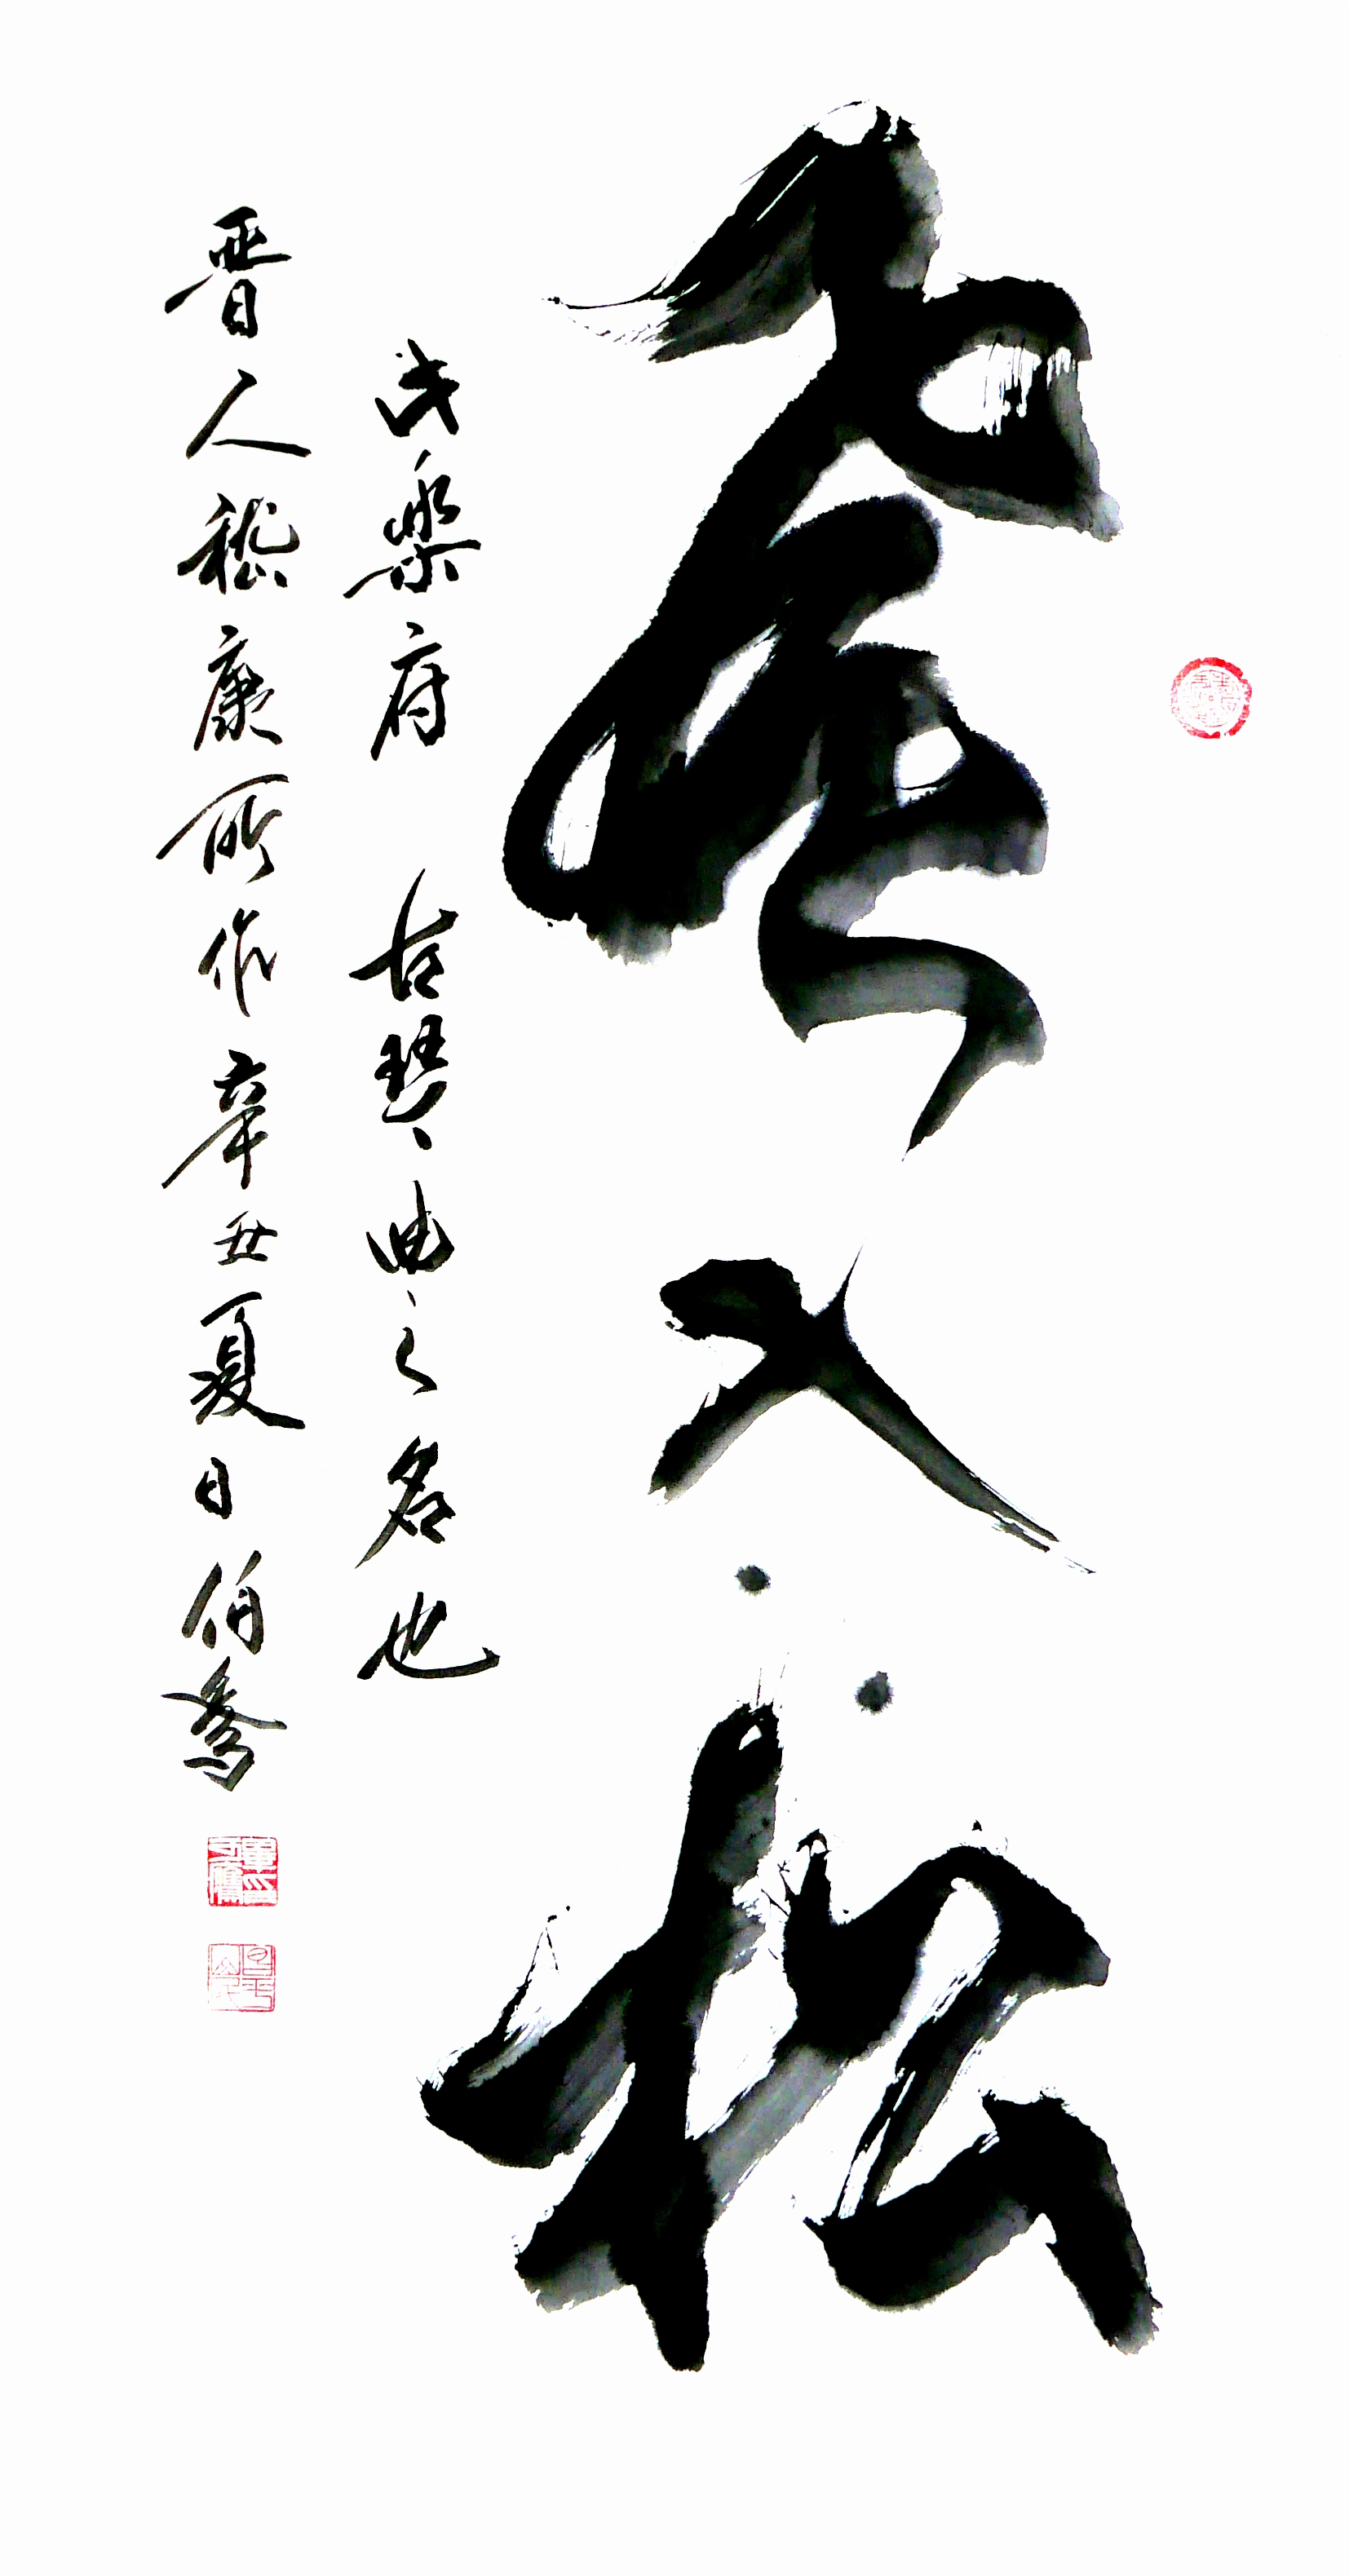 風入松
此樂府 古琴曲之名也
晋人嵇康所作辛丑夏日伯